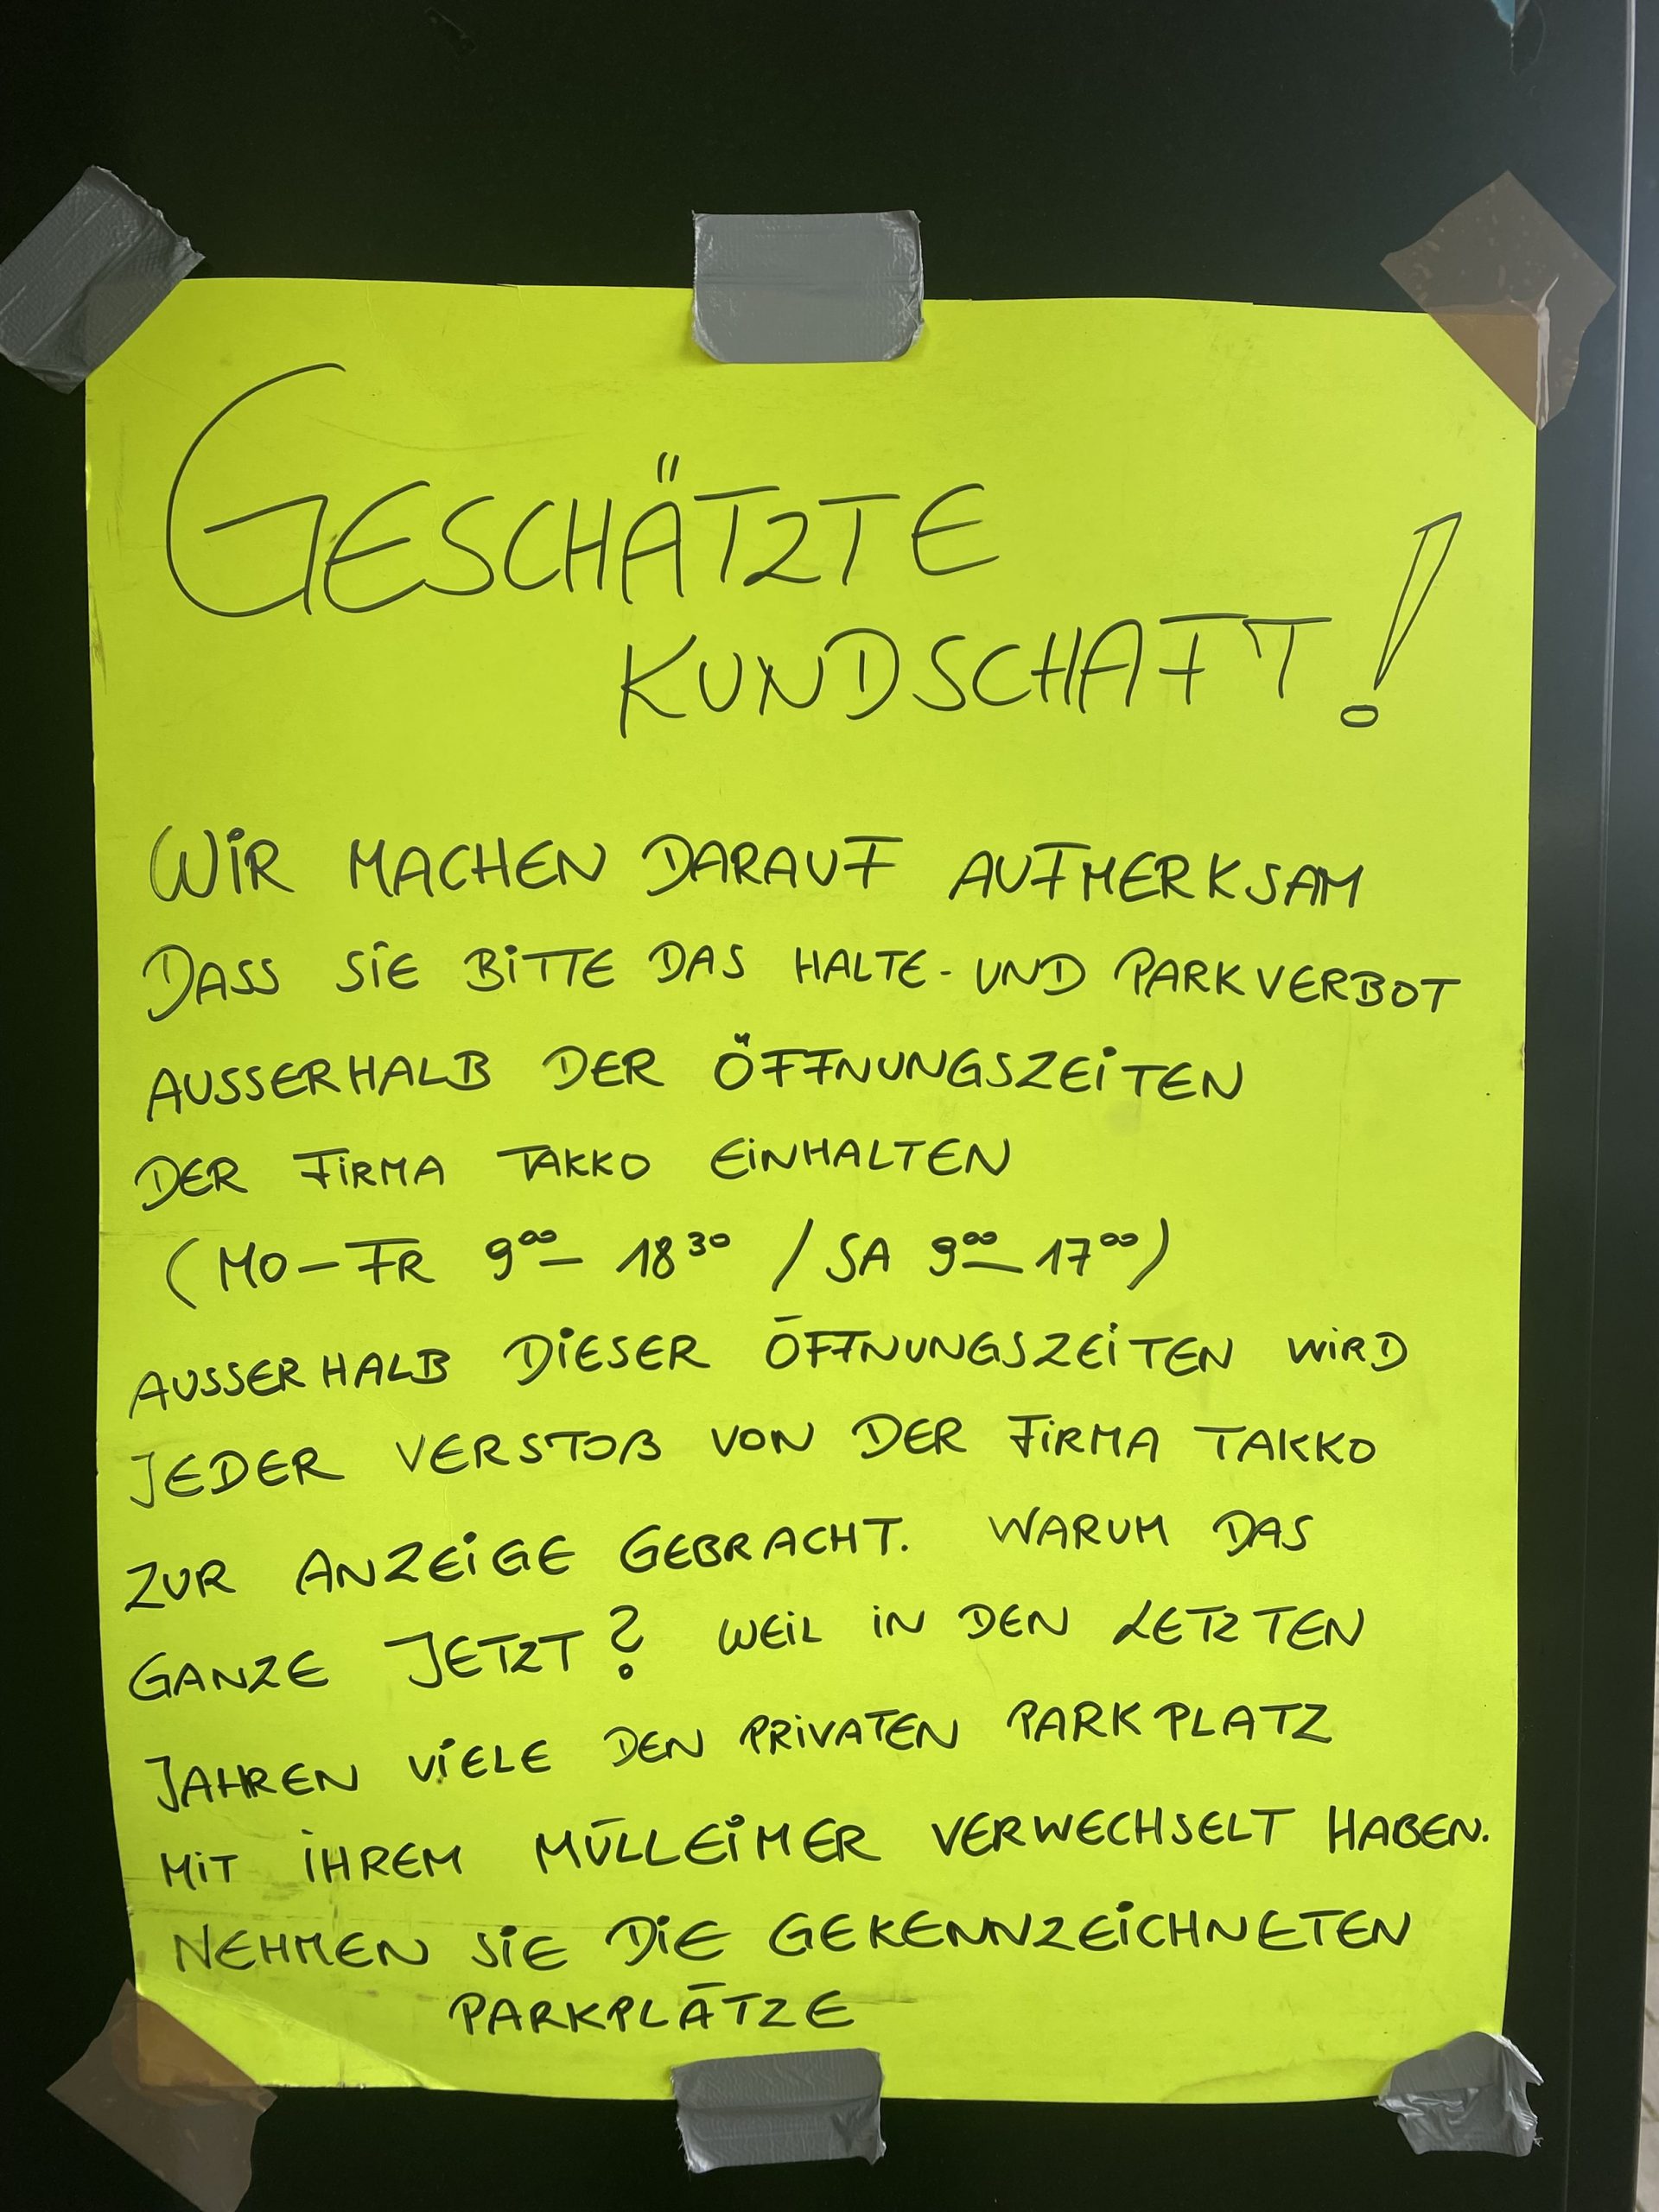 GESCHÄTZTE
KUNDSCHAFT!
WIR MACHEN DARAUF AUFMERKSAM
DASS SIE BITTE DAS HALTE- UND PARKVERBOT
AUSSERHALB DER ÖFFNUNGSZEITEN
DER FIRMA TAKKO EINHALTEN
(MO-FR 9⁰⁰- 18³⁰ / SA 9⁰⁰-17⁰⁰)
AUSSERHALB DIESER ÖFFNUNGSZEITEN WIRD
JEDER VERSTOß VON DER FIRMA TAKKO
ZUR ANZEIGE GEBRACHT. WARUM DAS
GANZE JETZT? WEIL IN DEN LETZTEN
JAHREN VIELE DEN PRIVATEN PARKPLATZ
MIT IHREM MÜLLEIMER VERWECHSELT HABEN.
NEHMEN SIE DIE GEKENNZEICHNETEN
PARKPLÄTZE